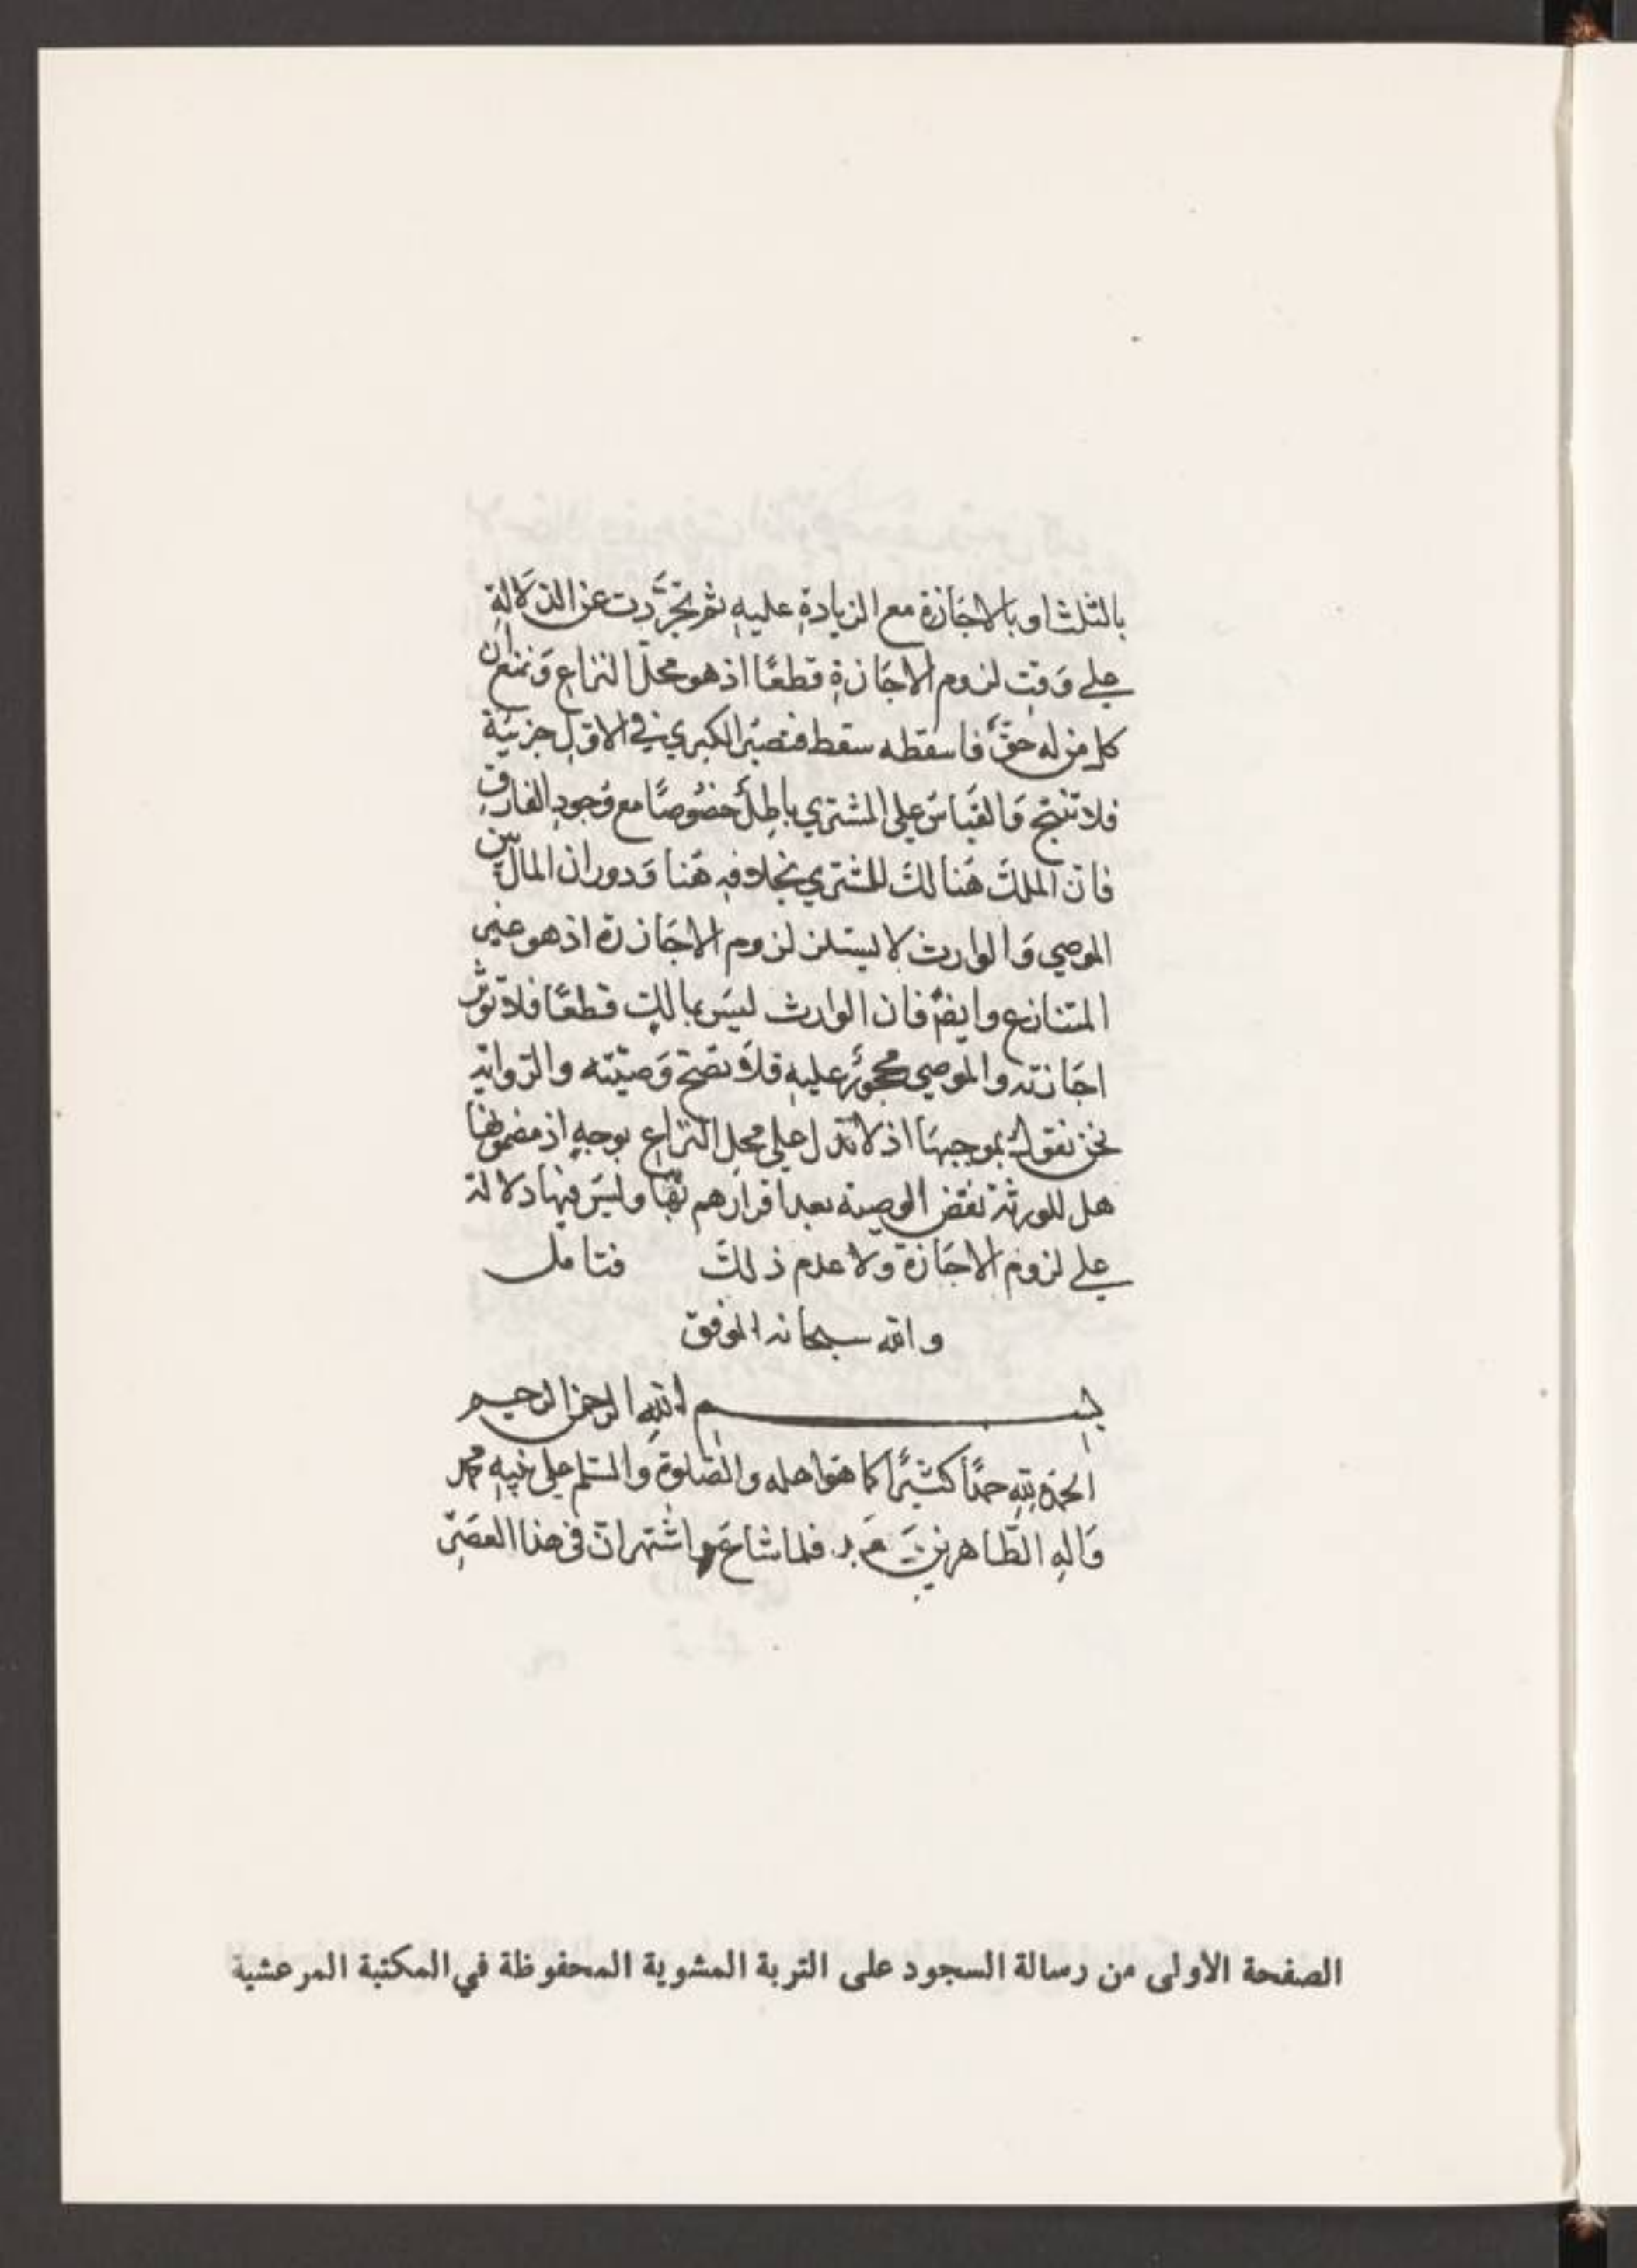 بالثلث او بالاجَازة مع الزيادةِ عليهِ ثم تجرَّدت عن الدلَالةِ
على وَقتِ لزوم الاجَازةِ قطعًا اذ هو محلّ النزاعِ وَنمنع ان
كل من له حقٌّ فاسقطه سقط فتصيُر الكبرى في الاوّلِ جزئيّة
فلا تنتج وَالقيَاسُ على المشتري باطِلٌ خصُوصًا مع وُجودِ الفارقِ
فانّ الملكَ هَنالكَ للمشتري بخلافهِ هَنا وَدوران المال بين
الموصي وَالوارث لا يستلزم لزوم الاجَازة اذ هو غير
المتنازع وايضًا فان الوارث ليسَ بمالكٍ قطعًا فلا تؤثّر
اجَازته والموصي محجورٌ عليهِ فلَا تصحّ وَصيّته والرّواية
نحن نقول بموجبهَا اذ لا تدل على محل النّزاعِ بوجهٍ اذ مضمونها
هل للورثة نقض الوصية بعد اقرارهم بهَا وليسَ فيها دلالة
على لزوم الاجَازة ولا عدم ذلكَ فتامل
والله سبحانه الموفق
بسم اللهِ الرحمن الرحيم
الحمد للهِ حمدًا كثيرًا كما هوَ اهله والصّلوة وَالسّلم على نبيهِ محمد
وَالهِ الطّاهرينَ وَبعد فلما شاعَ واشتهر انّ في هذا العصَرِ
الصفحة الأولى من رسالة السجود على التربة المشوية المحفوظة في المكتبة المرعشية